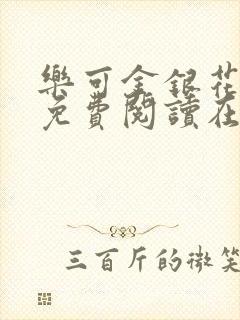 樂可金銀花
免費閱讀在
三百斤的微笑